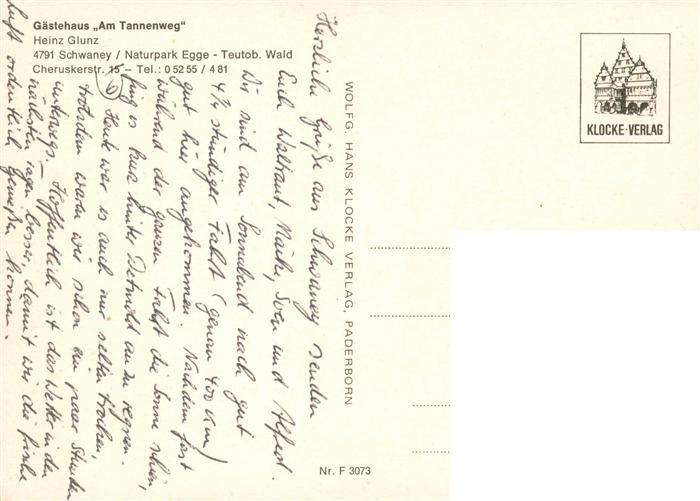 Gästehaus „Am Tannenweg“
Heinz Glunz
4791 Schwaney / Naturpark Egge - Teutob. Wald
Cheruskerstr. 15 – Tel.: 0 52 55 / 4 81
Herzliche Grüße aus Schwaney senden
Euch Waltraut, und Alfred.
Wir sind am Sonnabend nach gut
4½ stündiger Fahrt (genau 400 km)
gut hier angekommen. Nachdem fast
während der ganzen Fahrt die Sonne schien,
fing es kurz hinter Detmold an zu regnen.
Heute war es auch nur selten trocken,
trotzdem waren wir schon ein paar Stunden
unterwegs. – Hoffentlich ist das Wetter in den
nächsten Tagen besser, damit wir die frische
Luft ordentlich genießen können.
WOLFG. HANS KLOCKE VERLAG, PADERBORN
KLOCKE-VERLAG
Nr. F 3073